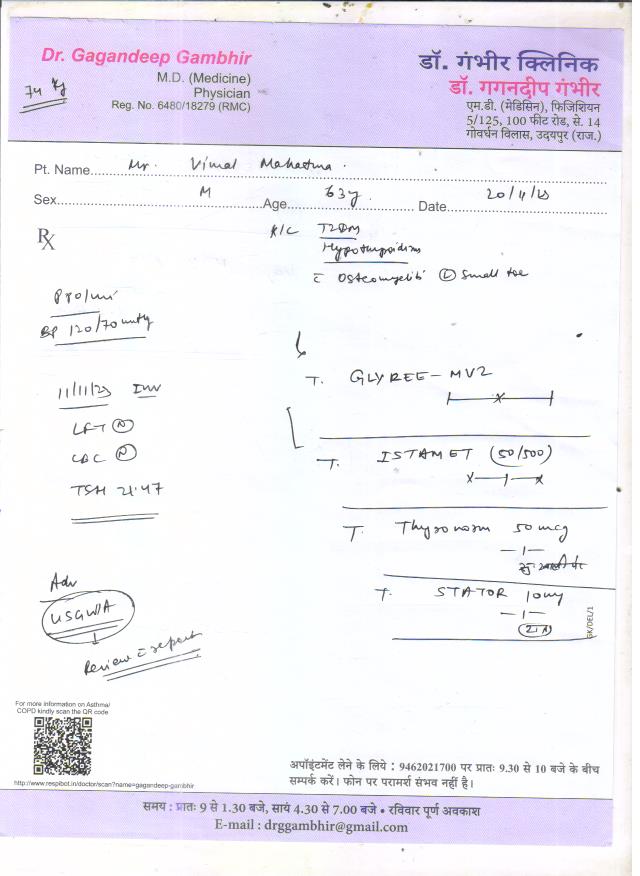 Dr. Gagandeep Gambhir
M.D. (Medicine)
Physician
Reg. No. 6480/18279 (RMC)
74 kg
डॉ. गंभीर क्लिनिक
डॉ. गगनदीप गंभीर
एम.डी. (मेडिसिन), फिजिशियन
5/125, 100 फीट रोड, से. 14
गोवर्धन विलास, उदयपुर (राज.)
Pt. Name Mr. Vimal
Sex M Age 63y Date
Rx
K/C T2DM
Hypothyroidism
c̄ Osteomyelitis (L) Small toe
BP 120/70 mmHg
11/11/23 Inv
LFT (N)
CBC (N)
TSH 21.47
T. GLYREE - MV2
T. ISTAMET (50/500)
T. Thyronorm 50 mcg
T. STATOR 10mg
Adv
USGWA
Review c̄ report
GK/DEL/1
For more information on Asthma/
COPD kindly scan the QR code
http://www.respibot.in/doctor/scan?name=gagandeep-gambhir
अपॉइंटमेंट लेने के लिये : 9462021700 पर प्रातः 9.30 से 10 बजे के बीच
सम्पर्क करें। फोन पर परामर्श संभव नहीं है।
समय : प्रातः 9 से 1.30 बजे, सायं 4.30 से 7.00 बजे • रविवार पूर्ण अवकाश
E-mail : drggambhir@gmail.com